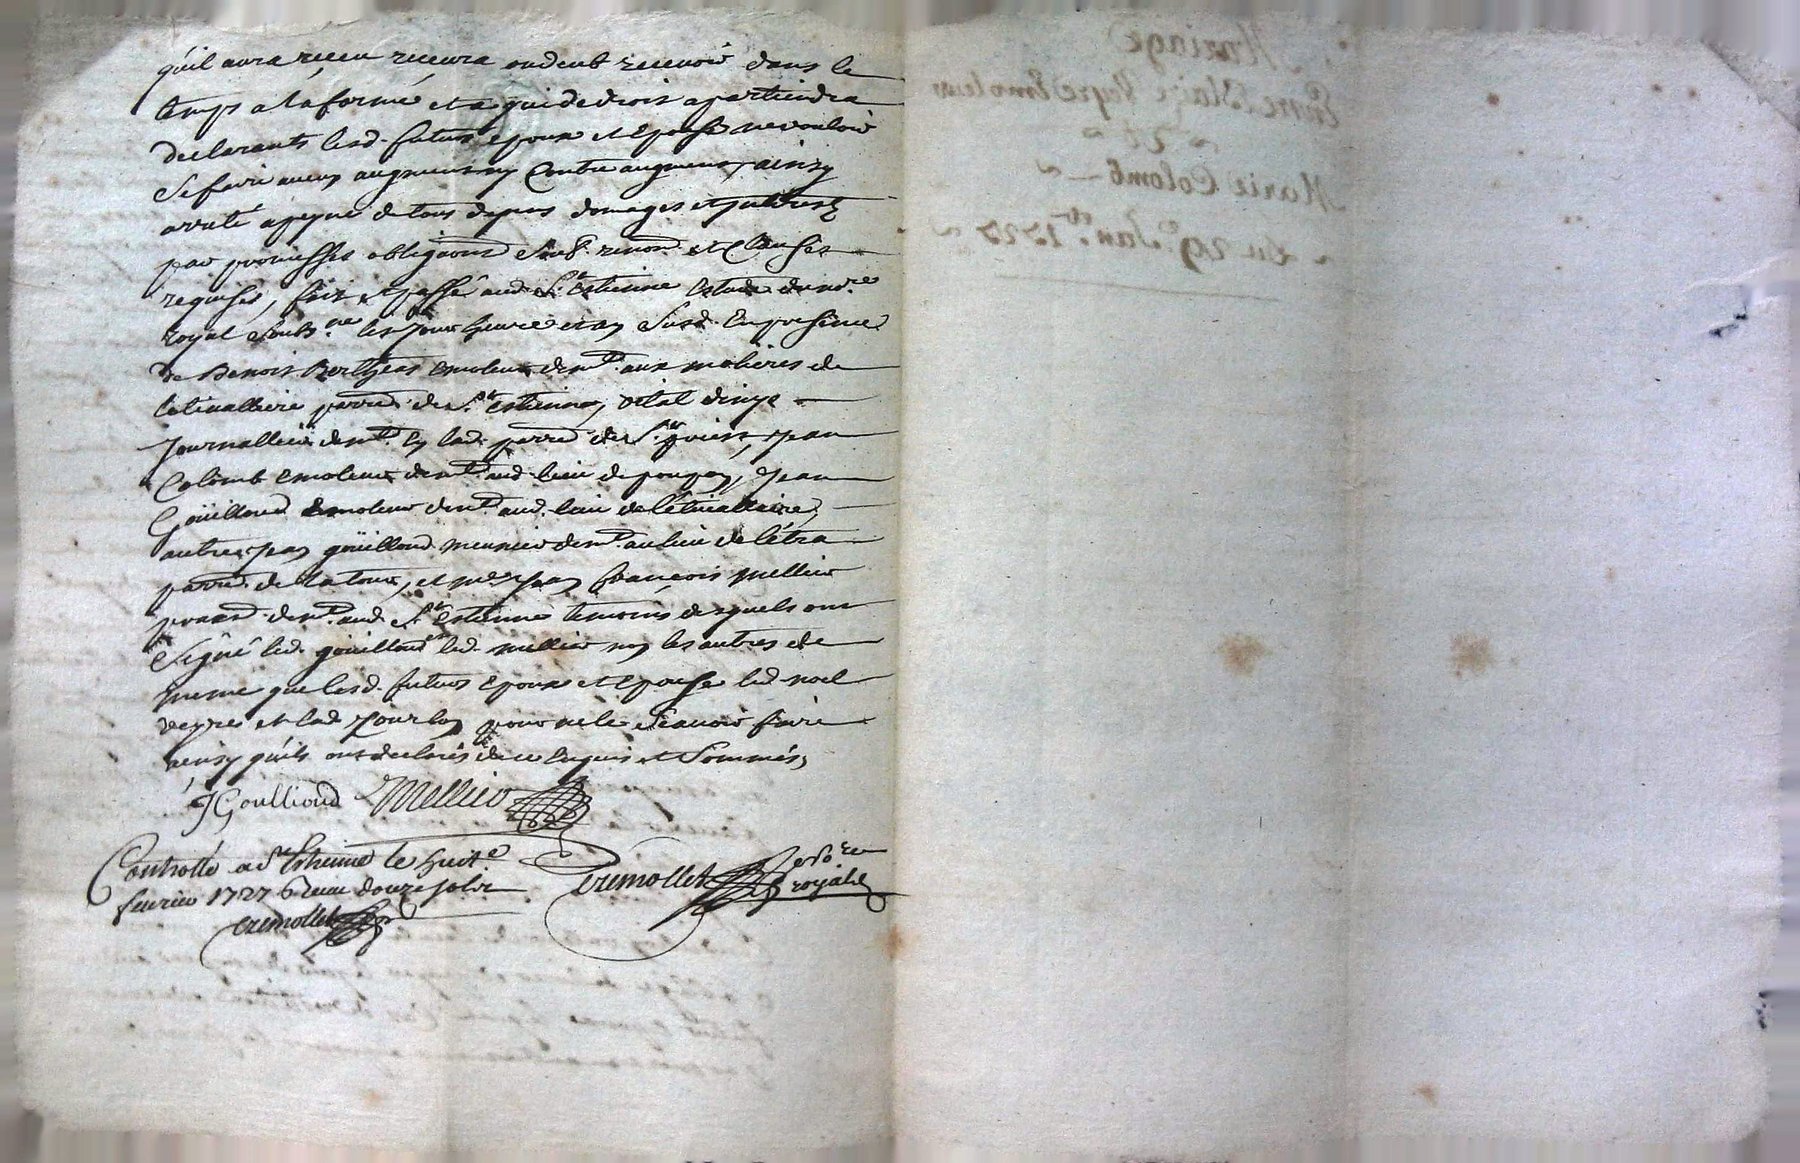 qu'il aura receu recevra ou deub recevoir dans le
temps a la forme et a qui de droit apartiendra
declarants lesd. futurs epoux et epouse ne vouloir
se faire aucun augment ny contre augment, ainsy
arreté a peyne de tous depens domages et interest
par promesses obligaons soub. renon. et clauses
requises, fait et passé aud St. Estienne estude du nore.
royal soubs.ne les jour heure et an susd. en presence
de Benoist Bertheas emoleur demt. aux molieres de
letivalliere parred. de St. Estienne, vital
journallier demt. en lad. parred. de St. priest, Jean
Colomb emoleur demt. aud. lieu de Jean
Goüilloud emoleur demt. aud. lieu de létivalliere,
autre Jean goüilloud meunier demt. au lieu de létra
parred. de latour, et me. Jean françois Mellier
demt. aud. St. Estienne temoins desquels ont
signé led. goüilloud led. mellier non les autres de
meme que lesd. futurs epoux et epouse led noel
veyre et lad pour ne le scavoir faire
ainsy qu'ils ont declarés de ce enquis et sommés,
JGoullioud Mellier
Controllé a St. Ethienne le huite.
fevrier 1727 Receu douze sols
Cremollet
Cremollet nore.
royal
Mariage
Entre Blaize Veyre Emoleur
Et
Marie Colomb
Du 29e. Janr. 1727